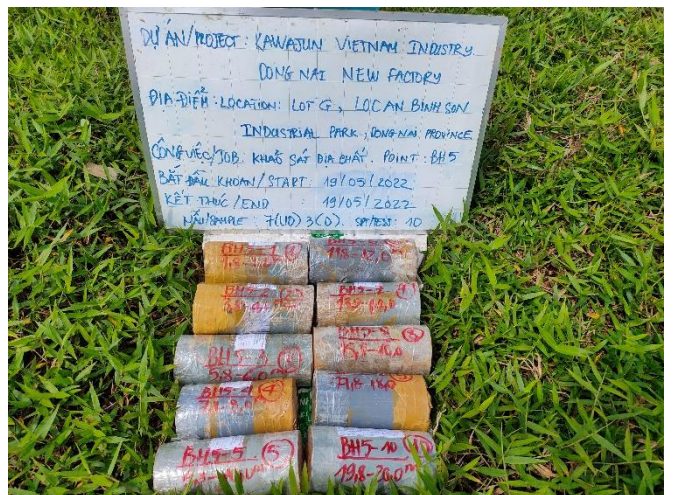 DỰ ÁN/PROJECT: KAWAJUN VIETNAM INDUSTRY
DONG NAI NEW FACTORY
ĐỊA ĐIỂM: LOCATION: LOT G, LOC AN BINH SON
INDUSTRIAL PARK, DONG NAI PROVINCE
CÔNG VIỆC/JOB: KHẢO SÁT ĐỊA CHẤT. POINT: BH5
BẮT ĐẦU KHOAN/START: 19/05/2022
KẾT THÚC/END: 19/05/2022
MẪU/SAMPLE: 7(UD) 3(D). SPT/TEST: 10
BH5-3
5,8-6,0m
BH5-4 (4)
BH5-5 (5)
11,8-12,0m
BH5-8
15,8-16,0
BH5-10
19,8-20,0m